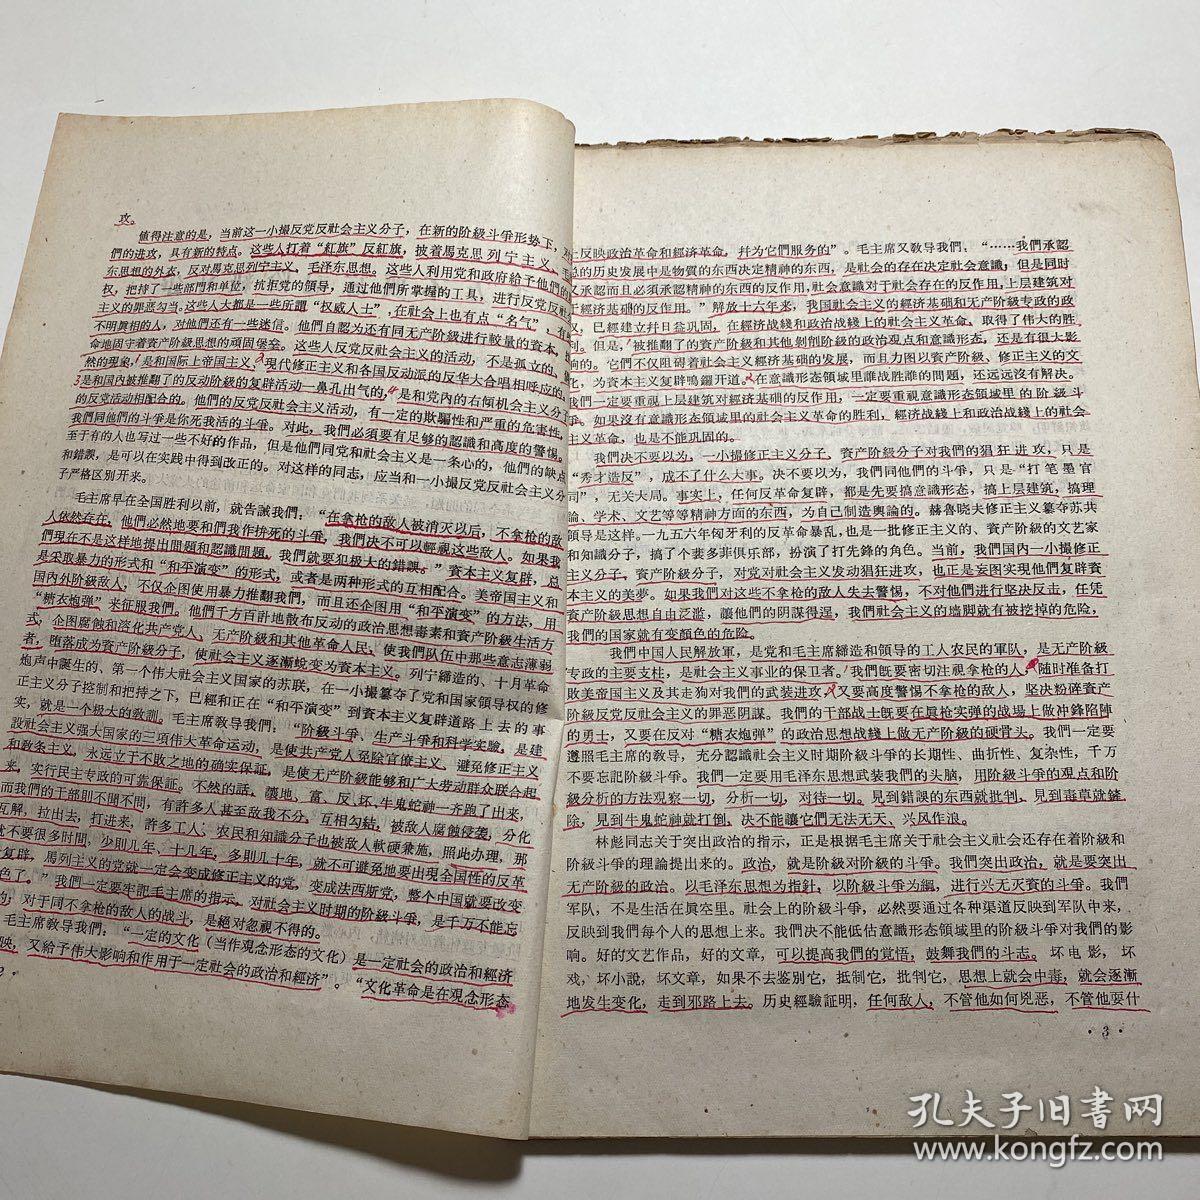 攻。
值得注意的是，当前这一小撮反党反社会主义分子，在新的阶級斗爭形势下，对
們的进攻，具有新的特点。这些人打着“紅旗”反紅旗，披着馬克思列宁主义、毛
东思想的外衣，反对馬克思列宁主义，毛泽东思想。这些人利用党和政府給予他們的
权，把持了一些部門和单位，抗拒党的領导，通过他們所掌握的工具，进行反党反社
主义的罪恶勾当。这些人大都是一些所謂“权威人士”，在社会上也有点“名气”，有
不明眞相的人，对他們还有一些迷信。他們自認为还有同无产阶級进行較量的资本，
命地固守着资产阶級思想的頑固堡垒。这些人反党反社会主义的活动，不是孤立的、
然的現象，1是和国际上帝国主义、2现代修正主义和各国反动派的反华大合唱相呼应的，
3是和国內被推翻了的反动阶級的复辟活动一鼻孔出气的，4是和党內的右傾机会主义分子
的反党活动相配合的。他們的反党反社会主义活动，有一定的欺騙性和严重的危害性，
我們同他們的斗爭是你死我活的斗爭。对此，我們必須要有足够的認識和高度的警惕。
至于有的人也写过一些不好的作品，但是他們同党和社会主义是一条心的，他們的缺点
和錯誤，是可以在实践中得到改正的。对这样的同志，应当和一小撮反党反社会主义分
子严格区别开来。
毛主席早在全国胜利以前，就告誡我們：“在拿枪的敌人被消灭以后，不拿枪的敌
人依然存在，他們必然地要和們我作拚死的斗爭，我們决不可以輕視这些敌人。如果我
們現在不是这样地提出問題和認識問題，我們就要犯极大的錯誤。”資本主义复辟，总
是采取暴力的形式和“和平演变”的形式，或者是两种形式的互相配合。美帝国主义和
国內外阶級敌人，不仅企图使用暴力推翻我們，而且还企图用“和平演变”的方法，用
“糖衣炮弹”来征服我們。他們千方百計地散布反动的政治思想毒素和資产阶級生活方
式，企图腐蝕和溶化共产党人、无产阶級和其他革命人民、使我們队伍中那些意志薄弱
者，堕落成为資产阶級分子，使社会主义逐漸蛻变为資本主义。列宁締造的、十月革命
炮声中誕生的、第一个伟大社会主义国家的苏联，在一小撮篡夺了党和国家領导权的修
正主义分子控制和把持之下，已經和正在“和平演变”到資本主义复辟道路上去的事
实，就是一个极大的敎訓。毛主席敎导我們：“阶級斗爭、生产斗爭和科学实驗，是建
設社会主义强大国家的三項伟大革命运动，是使共产党人免除官僚主义、避免修正主义
和敎条主义，永远立于不敗之地的确实保証，是使无产阶級能够和广大劳动群众联合起
来，实行民主专政的可靠保証。不然的話，讓地、富、反、坏、牛鬼蛇神一齐跑了出来，
而我們的干部則不聞不問，有許多人甚至敌我不分，互相勾結，被敌人腐蝕侵袭，分化
瓦解，拉出去，打进来，許多工人、农民和知識分子也被敌人軟硬兼施，照此办理，那
就不要很多时間，少則几年、十几年，多則几十年，就不可避免地要出現全国性的反革
复辟，馬列主义的党就一定会变成修正主义的党，变成法西斯党，整个中国就要改变
色了。”我們一定要牢記毛主席的指示。对社会主义时期的阶級斗爭，是千万不能忘
的；对于同不拿枪的敌人的战斗，是絕对忽视不得的。
毛主席敎导我們：“一定的文化（当作观念形态的文化）是一定社会的政治和經济
映，又給予伟大影响和作用于一定社会的政治和經济”。“文化革命是在观念形态
2·
上反映政治革命和經济革命，幷为它們服务的”。毛主席又敎导我們：“……我們承認
总的历史发展中是物質的东西决定精神的东西，是社会的存在决定社会意識；但是同时
又承認而且必須承認精神的东西的反作用，社会意識对于社会存在的反作用，上层建筑对
于經济基础的反作用。”解放十六年来，我国社会主义的經济基础和无产阶級专政的政
义，已經建立幷日益巩固，在經济战綫和政治战綫上的社会主义革命，取得了伟大的胜
利。但是，1被推翻了的資产阶級和其他剝削阶級的政治观点和意識形态，还是有很大影
响的。它們不仅阻碍着社会主义經济基础的发展，而且力图以資产阶級、修正主义的文
化，为資本主义复辟鳴鑼开道。2在意識形态領域里誰战胜誰的問題，还远远沒有解决。
我們一定要重視上层建筑对經济基础的反作用，一定要重視意識形态領域里的阶級斗
爭。如果沒有意識形态領域里的社会主义革命的胜利，經济战綫上和政治战綫上的社会
主义革命，也是不能巩固的。
我們决不要以为，一小撮修正主义分子、資产阶級分子对我們的猖狂进攻，只是
“秀才造反”，成不了什么大事。决不要以为，我們同他們的斗爭，只是“打笔墨官
司”，无关大局。事实上，任何反革命复辟，都是先要搞意識形态，搞上层建筑，搞理
論、学术、文艺等等精神方面的东西，为自己制造輿論的。赫魯晓夫修正主义篡夺苏共
領导是这样。一九五六年匈牙利的反革命暴乱，也是一批修正主义的、資产阶級的文艺家
和知識分子，搞了个裴多菲俱乐部，扮演了打先鋒的角色。当前，我們国內一小撮修正
主义分子，資产阶級分子，对党对社会主义发动猖狂进攻，也正是妄图实現他們复辟資
本主义的美夢。如果我們对这些不拿枪的敌人失去警惕，不对他們进行坚决反击，任凭
資产阶級思想自由泛滥，讓他們的阴謀得逞，我們社会主义的墙脚就有被挖掉的危险，
我們的国家就有变顏色的危险。
我們中国人民解放軍，是党和毛主席締造和領导的工人农民的軍队，是无产阶級
专政的主要支柱，是社会主义事业的保卫者。1我們既要密切注視拿枪的人，随时准备打
敗美帝国主义及其走狗对我們的武装进攻，2又要高度警惕不拿枪的敌人，坚决粉碎資产
阶級反党反社会主义的罪恶阴謀。我們的干部战士既要在眞枪实弹的战場上做冲鋒陷陣
的勇士，又要在反对“糖衣炮弹”的政治思想战綫上做无产阶級的硬骨头。我們一定要
遵照毛主席的敎导，充分認識社会主义时期阶級斗爭的长期性、曲折性、复杂性，千万
不要忘記阶級斗爭。我們一定要用毛泽东思想武装我們的头脑，用阶級斗爭的观点和阶
級分析的方法观察一切，分析一切，对待一切。見到錯誤的东西就批判，見到毒草就鏟
除，見到牛鬼蛇神就打倒，决不能讓它們无法无天、兴风作浪。
林彪同志关于突出政治的指示，正是根据毛主席关于社会主义社会还存在着阶級和
阶級斗爭的理論提出来的。政治，就是阶級对阶級的斗爭。我們突出政治，就是要突出
无产阶級的政治。以毛泽东思想为指針，以阶級斗爭为綱，进行兴无灭資的斗爭。我們
軍队，不是生活在眞空里。社会上的阶級斗爭，必然要通过各种渠道反映到軍队中来，
反映到我們每个人的思想上来。我們决不能低估意識形态領域里的阶級斗爭对我們的影
响。好的文艺作品，好的文章，可以提高我們的覚悟，鼓舞我們的斗志。坏电影，坏
戏，坏小說，坏文章，如果不去鉴别它，抵制它，批判它，思想上就会中毒，就会逐漸
地发生变化，走到邪路上去。历史經驗証明，任何敌人，不管他如何兇恶，不管他耍什
·3·
孔夫子旧書网
www.kongfz.com